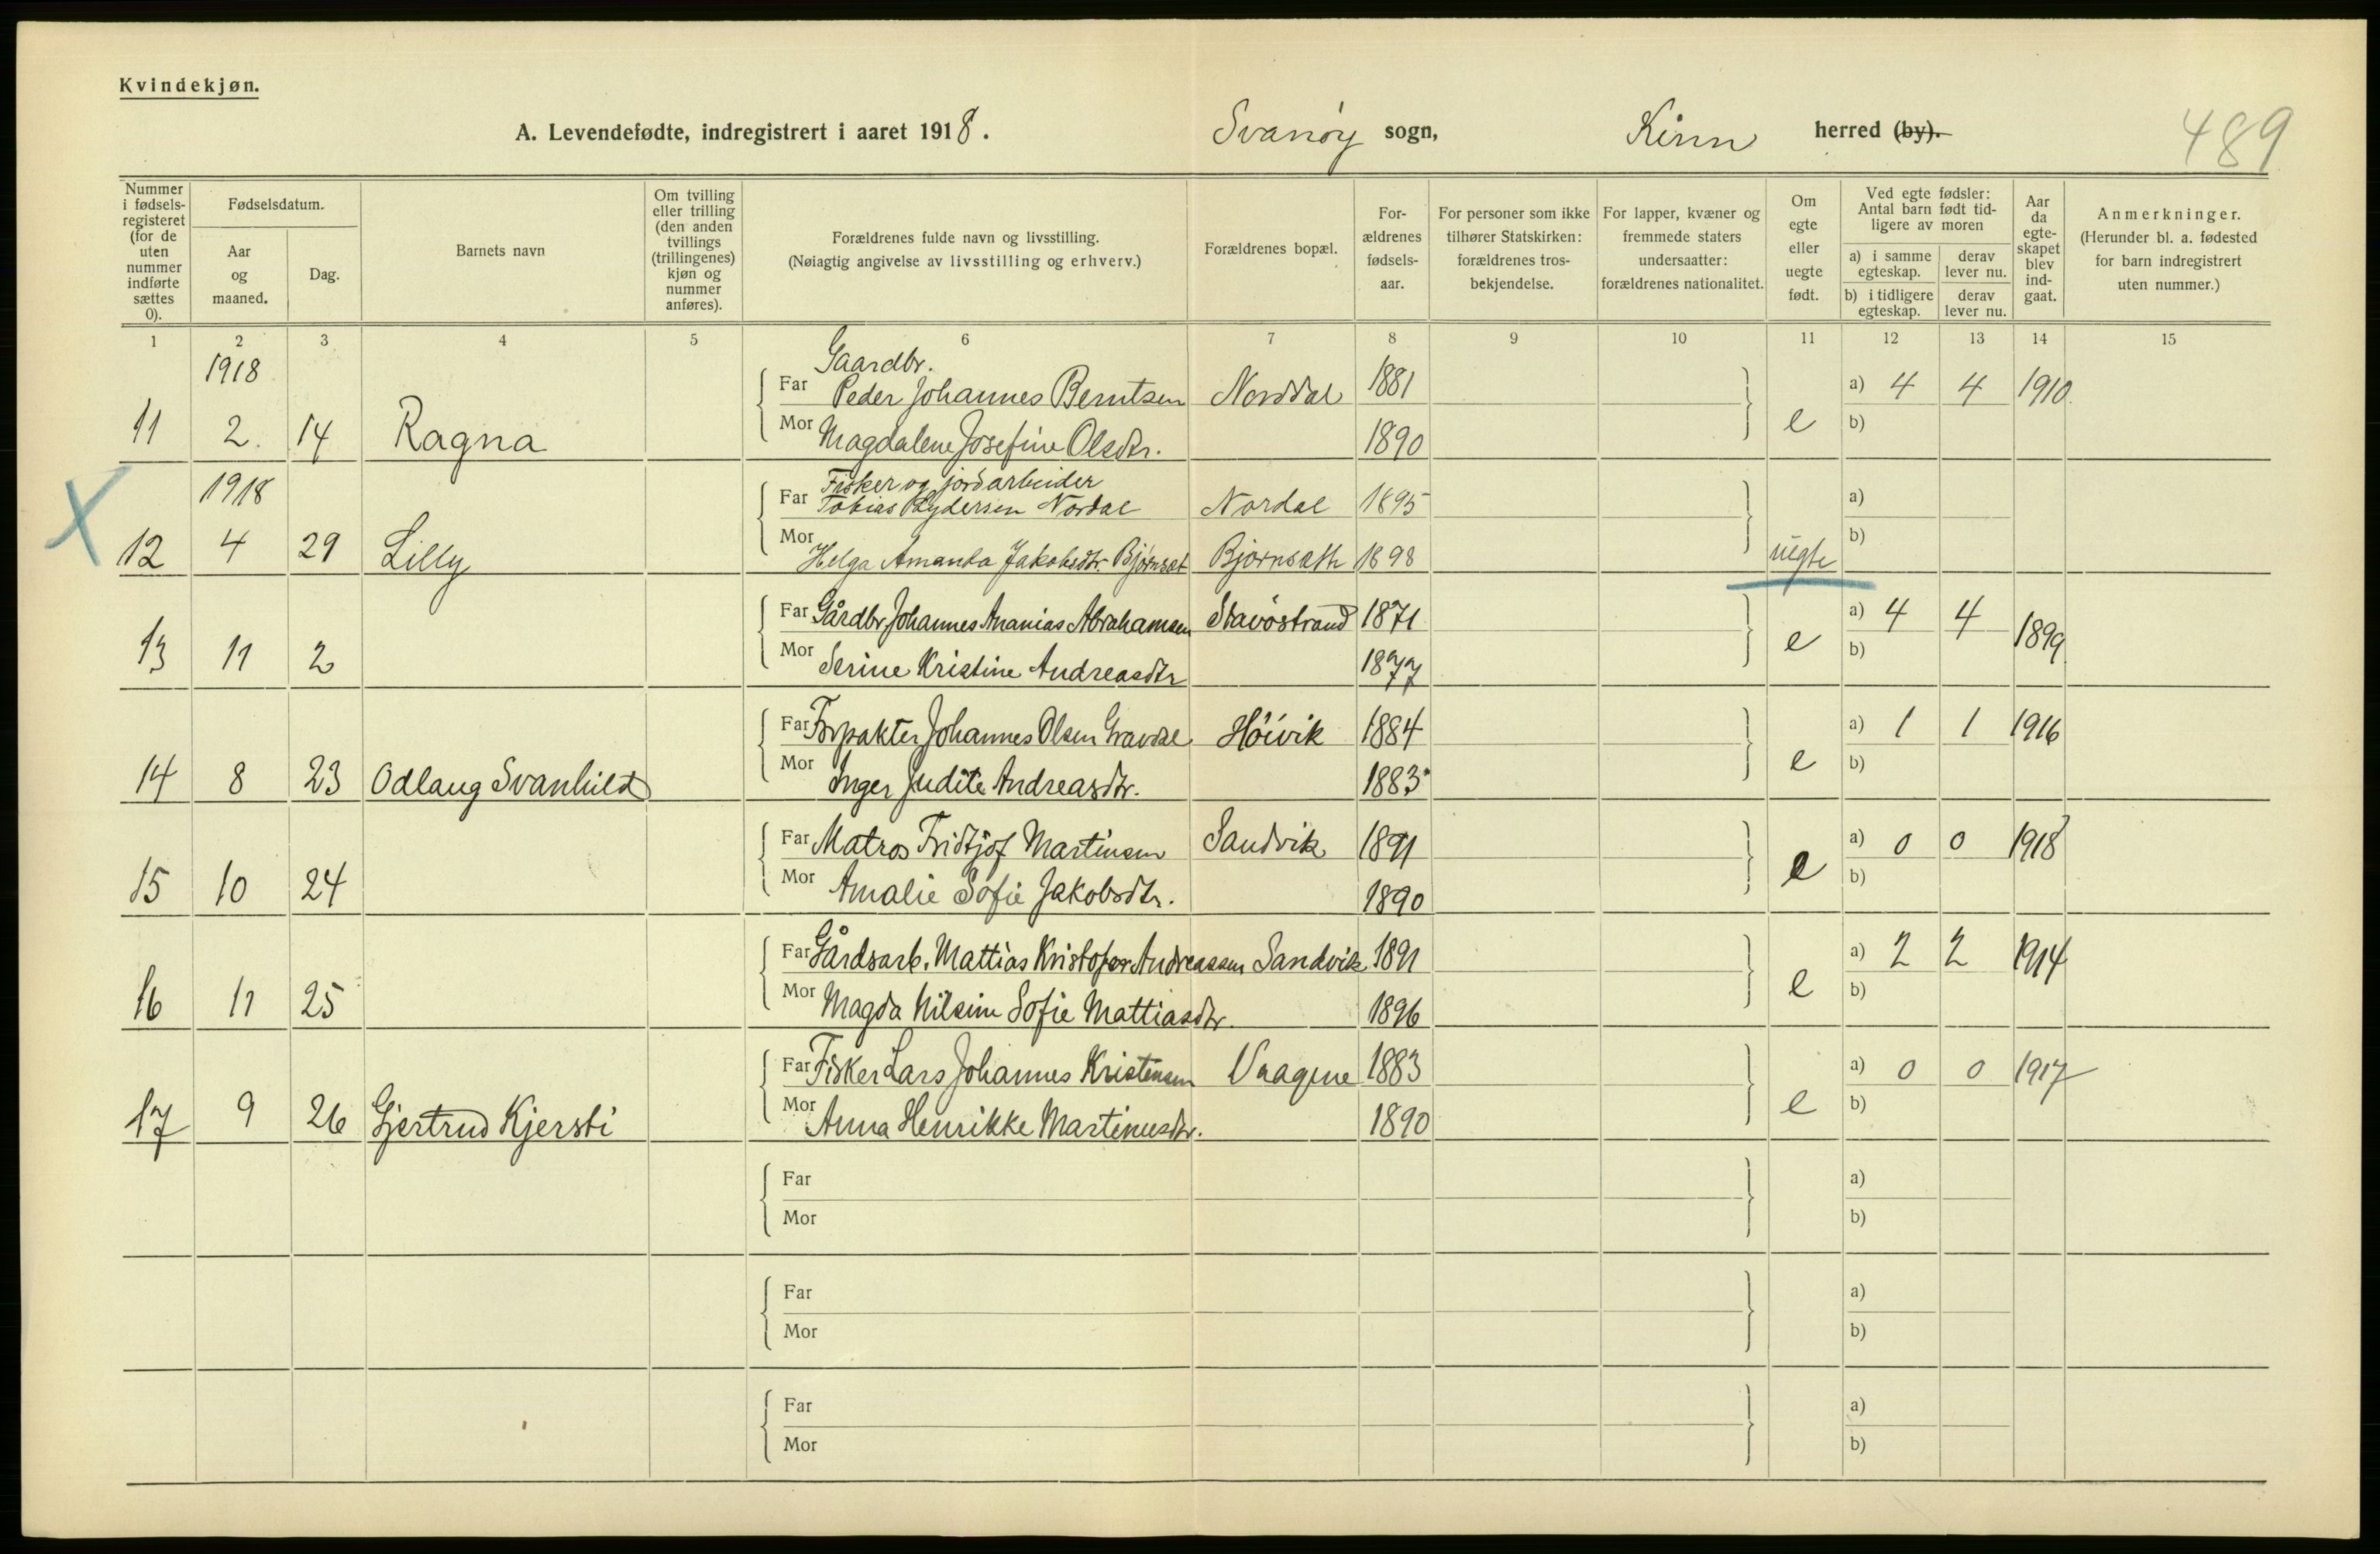 Kvindekjøn.
A. Levendefødte, indregistrert i aaret 1918. Svanøy sogn, Kinn herred (by). 489
Nummer i fødsels-registeret (for de uten nummer indførte sættes 0).
Fødselsdatum.
Aar og maaned.
Dag.
Barnets navn
Om tvilling eller trilling (den anden tvillings (trillingenes) kjøn og nummer anføres).
Forældrenes fulde navn og livsstilling.
(Nøiagtig angivelse av livsstilling og erhverv.)
Forældrenes bopæl.
For-ældrenes fødsels-aar.
For personer som ikke tilhører Statskirken: forældrenes tros-bekjendelse.
For lapper, kvæner og fremmede staters undersaatter: forældrenes nationalitet.
Om egte eller uegte født.
Ved egte fødsler: Antal barn født tid-ligere av moren
a) i samme egteskap. derav lever nu.
b) i tidligere egteskap. derav lever nu.
Aar da egte-skapet blev ind-gaat.
Anmerkninger.
(Herunder bl. a. fødested for barn indregistrert uten nummer.)
1 2 3 4 5 6 7 8 9 10 11 12 13 14 15
1918 Gaardbr.
Far Peder Johannes Berntsen Norddal 1881 a) 4 4 1910
11 2. 14 Ragna Mor Magdalene Josefine Olsdtr. 1890 e b)
1918 Fisker og jordarbeider
Far Tobias Nordal Nordal 1895 a)
12 4 29 Lilly Mor Helga Amanda Jakobsdtr. Bjørnset Bjørnsæth 1898 uegte b)
X
Far Gårdbr. Johannes Ananias Abrahamsen Stavöstrand 1871 a) 4 4 1899
13 11 2 Mor Serine Kristine Andreasdtr 1877 e b)
Far Forpakter Johannes Olsen Gravdal Höivik 1884 a) 1 1 1916
14 8 23 Odlaug Svanhild Mor Inger Judite Andreasdtr. 1883 e b)
Far Matros Fridtjof Martinsen Sandvik 1891 a) 0 0 1918
15 10 24 Mor Amalie Sofie Jakobsdtr. 1890 e b)
Far Gårdsarb. Mattias Kristofer Andreassen Sandvik 1891 a) 2 2 1914
16 11 25 Mor Magda Nilsine Sofie Mattiasdtr. 1896 e b)
Far Fisker Lars Johannes Kristensen Vaagene 1883 a) 0 0 1917
17 9 26 Gjertrud Kjersti Mor Anna Henrikke Martinusdtr. 1890 e b)
Far a)
Mor b)
Far a)
Mor b)
Far a)
Mor b)